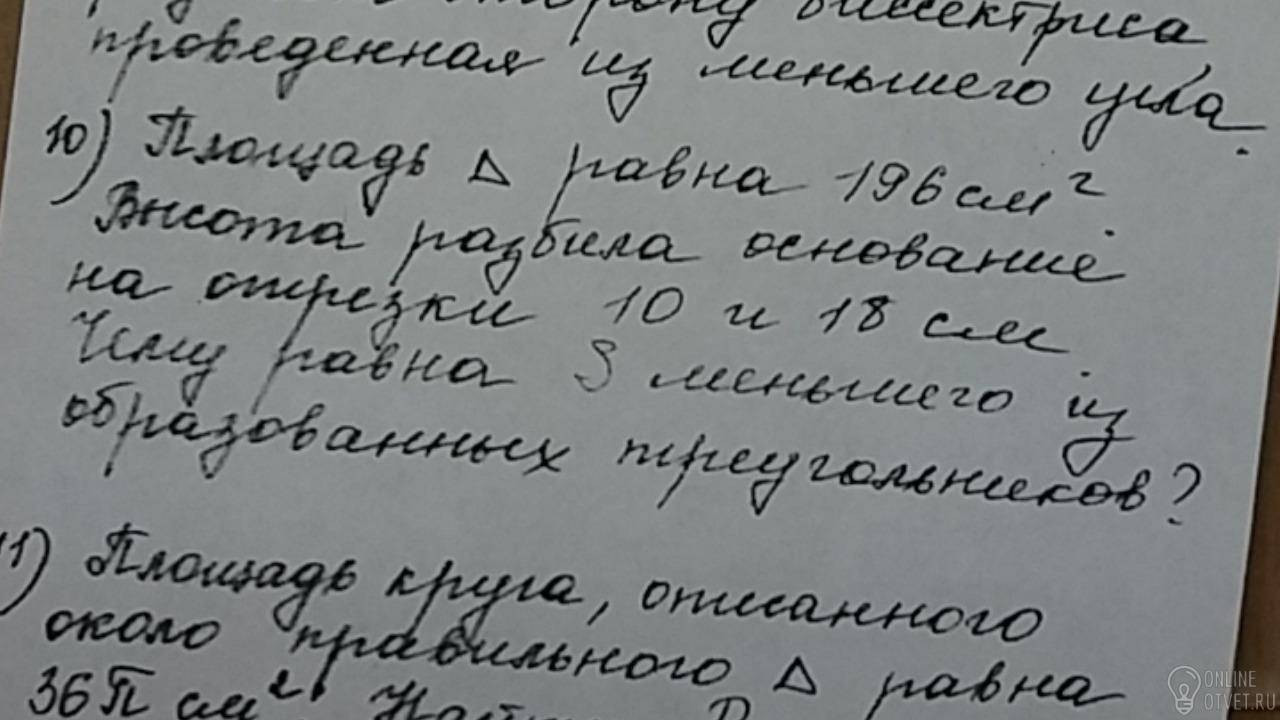 сторону биссектриса,
проведенная из меньшего угла.
10) Площадь △ равна 196 см²
Высота разбила основание
на отрезки 10 и 18 см
Чему равна S меньшего из
образованных треугольников?
11) Площадь круга, описанного
около правильного △ равна
36π см².
ONLINE
OTVET.RU